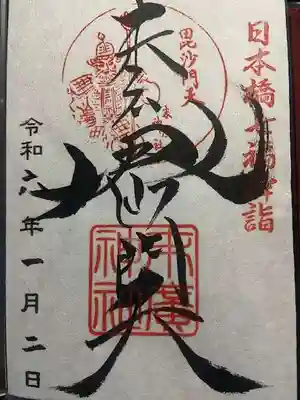 日本橋七福神詣
毘沙門天
奉拝
毘沙門天
末廣神社
令和六年一月二日